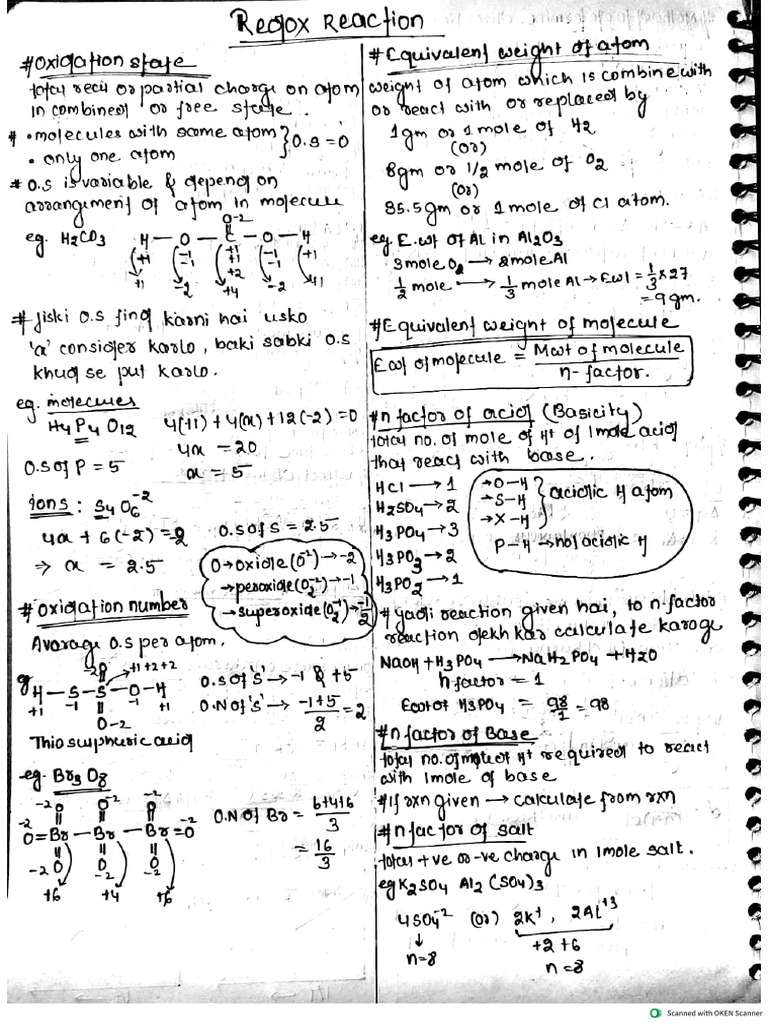 Redox Reaction
#Oxidation state
total real or partial charge on atom
in combined or free state.
# • molecules with same atom
• only one atom } O.S = 0
# O.S is variable & depend on
arrangement of atom in molecule
O-2
eg. H2CO3 H — O — C — O — H
+1 -1 +1 -1 +1
-1 +1 -1
+2
+1 -2 +4 -2 +1
# Jiski O.S find karni hai usko
'a' consider karlo, baki sabki O.S
khud se put karlo.
eg. molecules
H4P4O12 4(+1)+4(x)+12(-2)=0
4x = 20
O.S of P = 5 x = 5
ions : S4O6^-2
4x + 6(-2) = -2 O.S of S = 2.5
⇒ x = 2.5
O→oxide(O^-2)→-2
→peroxide(O2^-2)→-1
→superoxide(O2^-1)→-1/2
#Oxidation number
Avarage O.S per atom.
-2O +1+2+2
eg H—S—S—O—H O.S of 'S'→ -1 & +5
+1 -1 -2 +1 O.N of 'S'→ -1+5/2 = 2
O-2
Thiosulphuric acid
eg. Br3O8
-2O O-2 O-2
-2 O=Br—Br—Br=O-2 O.N of Br = 6+4+6/3
= 16/3
-2O O-2 O-2
+6 +4 +6
#Equivalent weight of atom
weight of atom which is combine with
or react with or replaced by
1gm or 1 mole of H2
(or)
8gm or 1/2 mole of O2
(or)
35.5gm or 1 mole of Cl atom.
eg. E.wt of Al in Al2O3
3mole O2 → 2moleAl
1/2 mole → 1/3 mole Al → Ewt = 1/3 × 27
= 9 gm.
#Equivalent weight of molecule
Ewt of molecule = Mwt of molecule / n-factor.
#n factor of acid (Basicity)
total no. of mole of H+ of 1mole acid
that react with base.
HCl → 1
H2SO4 → 2
H3PO4 → 3
H3PO3 → 2
H3PO2 → 1
→O-H
→S-H } acidic H atom
→X-H
P-H → not acidic H
# yadi reaction given hai, to n-factor
reaction dekh kar calculate karoge
NaOH + H3PO4 → NaH2PO4 + H2O
n factor = 1
Ewt of H3PO4 = 98/1 = 98
#n factor of Base
total no. of mole of H+ required to react
with 1mole of base
#If rxn given → calculate from rxn
#n factor of salt
total +ve or -ve charge in 1mole salt.
eg K2SO4 Al2(SO4)3
4SO4^-2 (or) 2K+, 2Al+3
↓ +2 +6
n=8 n=8
Scanned with OKEN Scanner